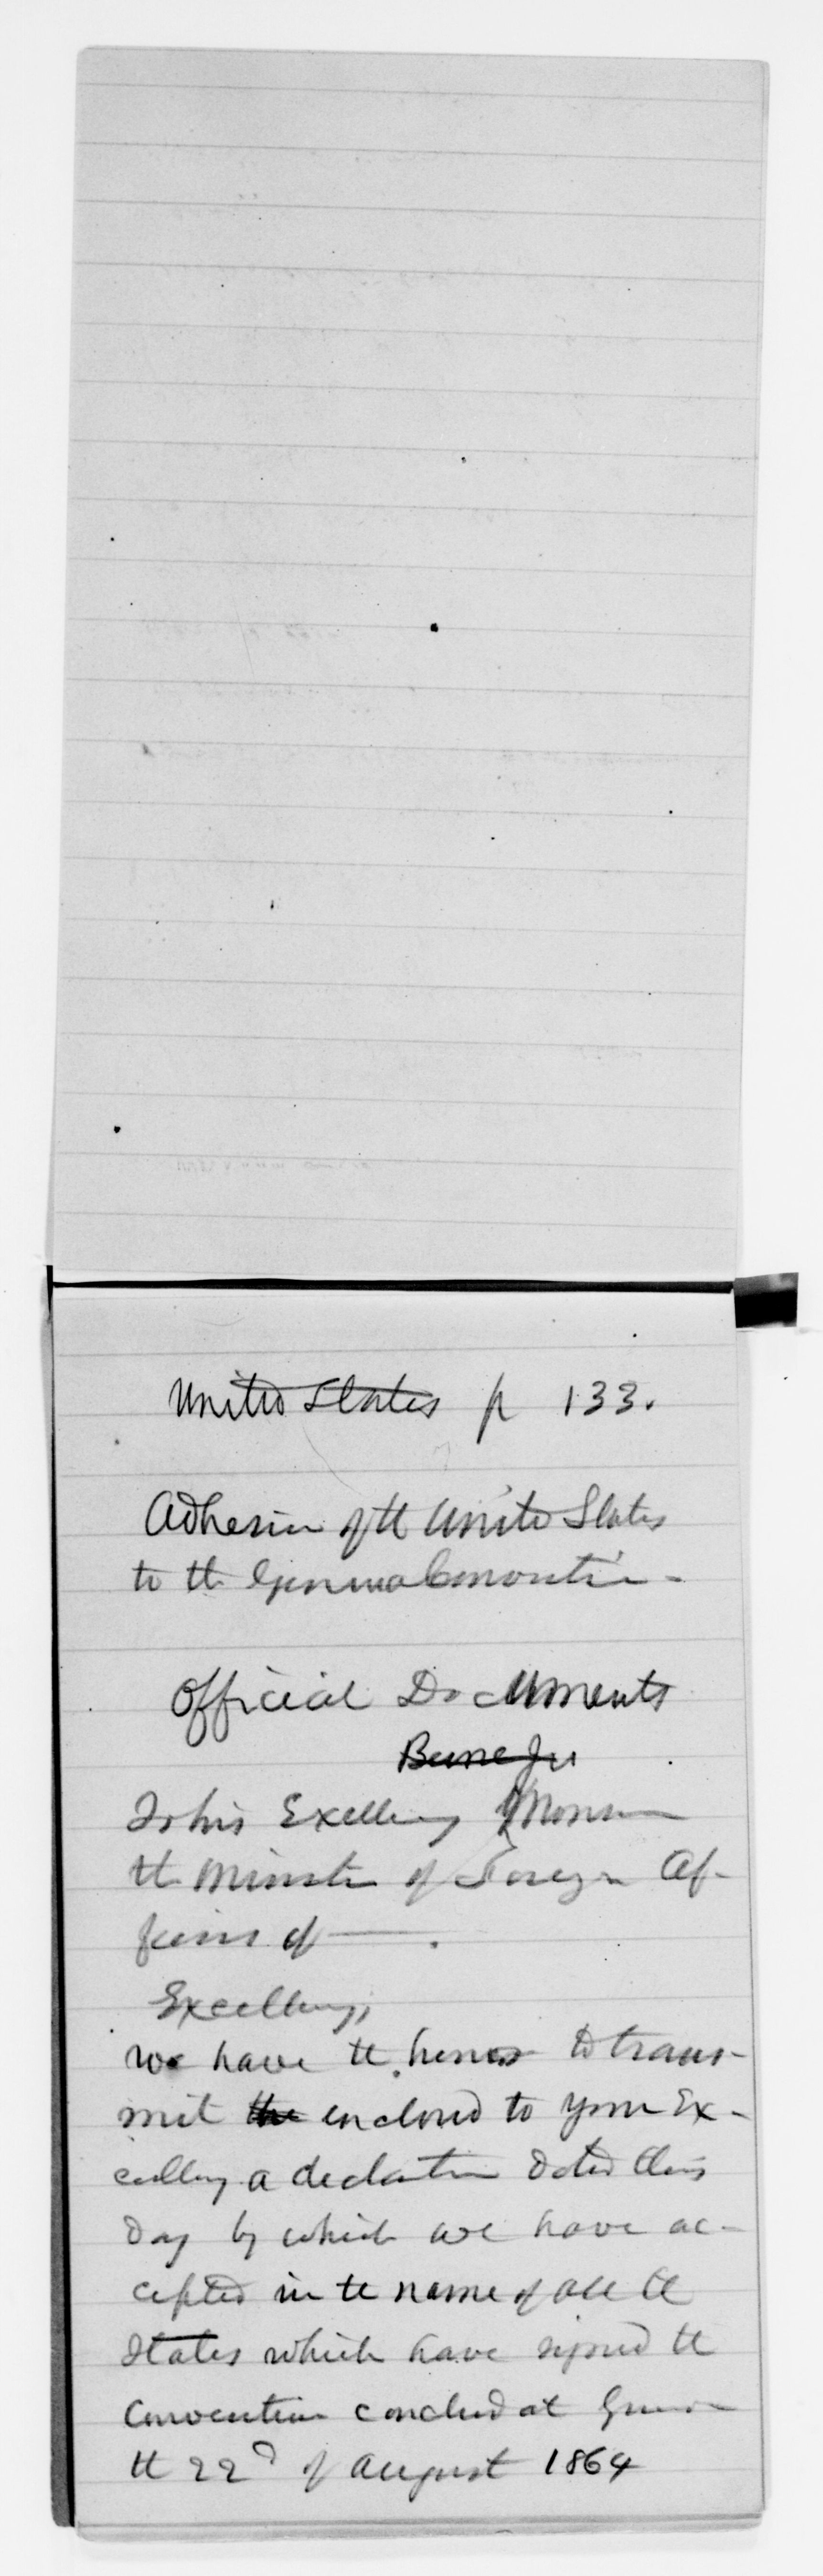 United States p 133.
Adhesion of the United States
to the Geneva Convention -
Official Documents
To his Excellency Monsieur
the Minister of Foreign Af-
fairs of — .
Excellency,
We have the honor to trans-
mit the enclosed to your Ex-
cellency a declaration dated this
day by which we have ac-
cepted in the name of all the
States which have signed the
Convention concluded at Geneva
the 22d of August 1864